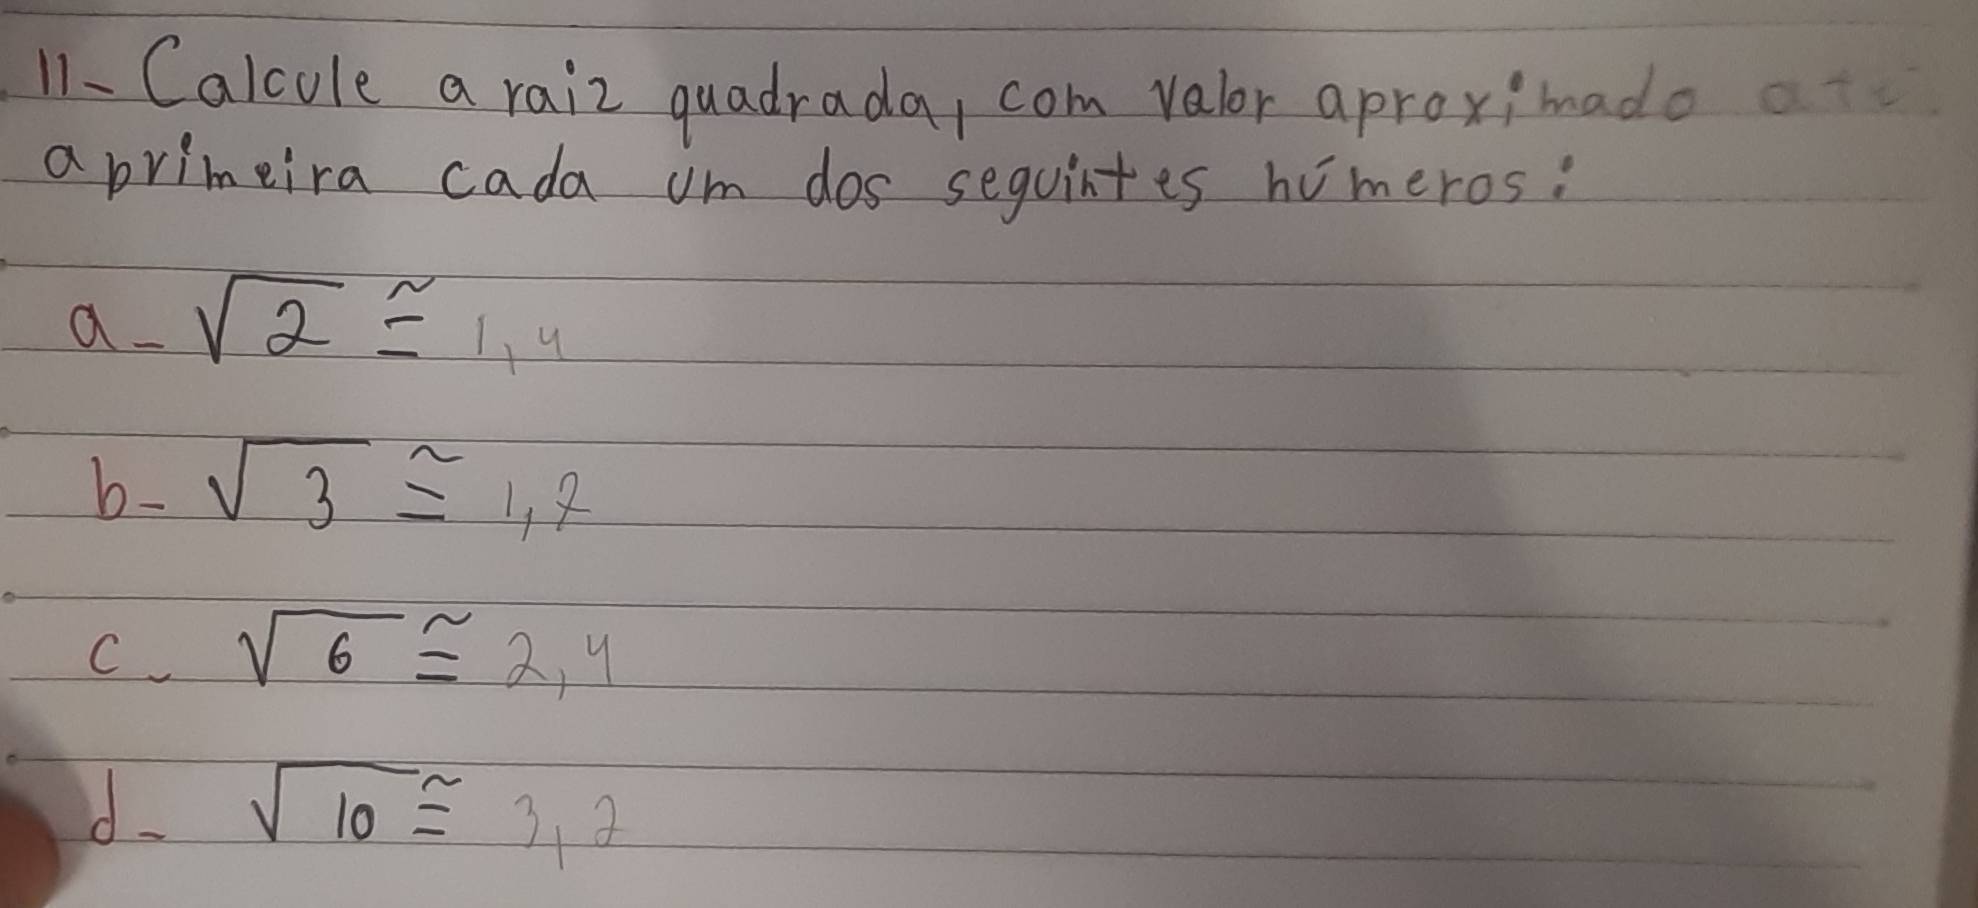 11- Calcule a raiz quadrada, com valor aproximado até
a primeira cada um dos seguintes números:
a- √2 ≅ 1,4
b- √3 ≅ 1,7
c- √6 ≅ 2,4
d- √10 ≅ 3,2